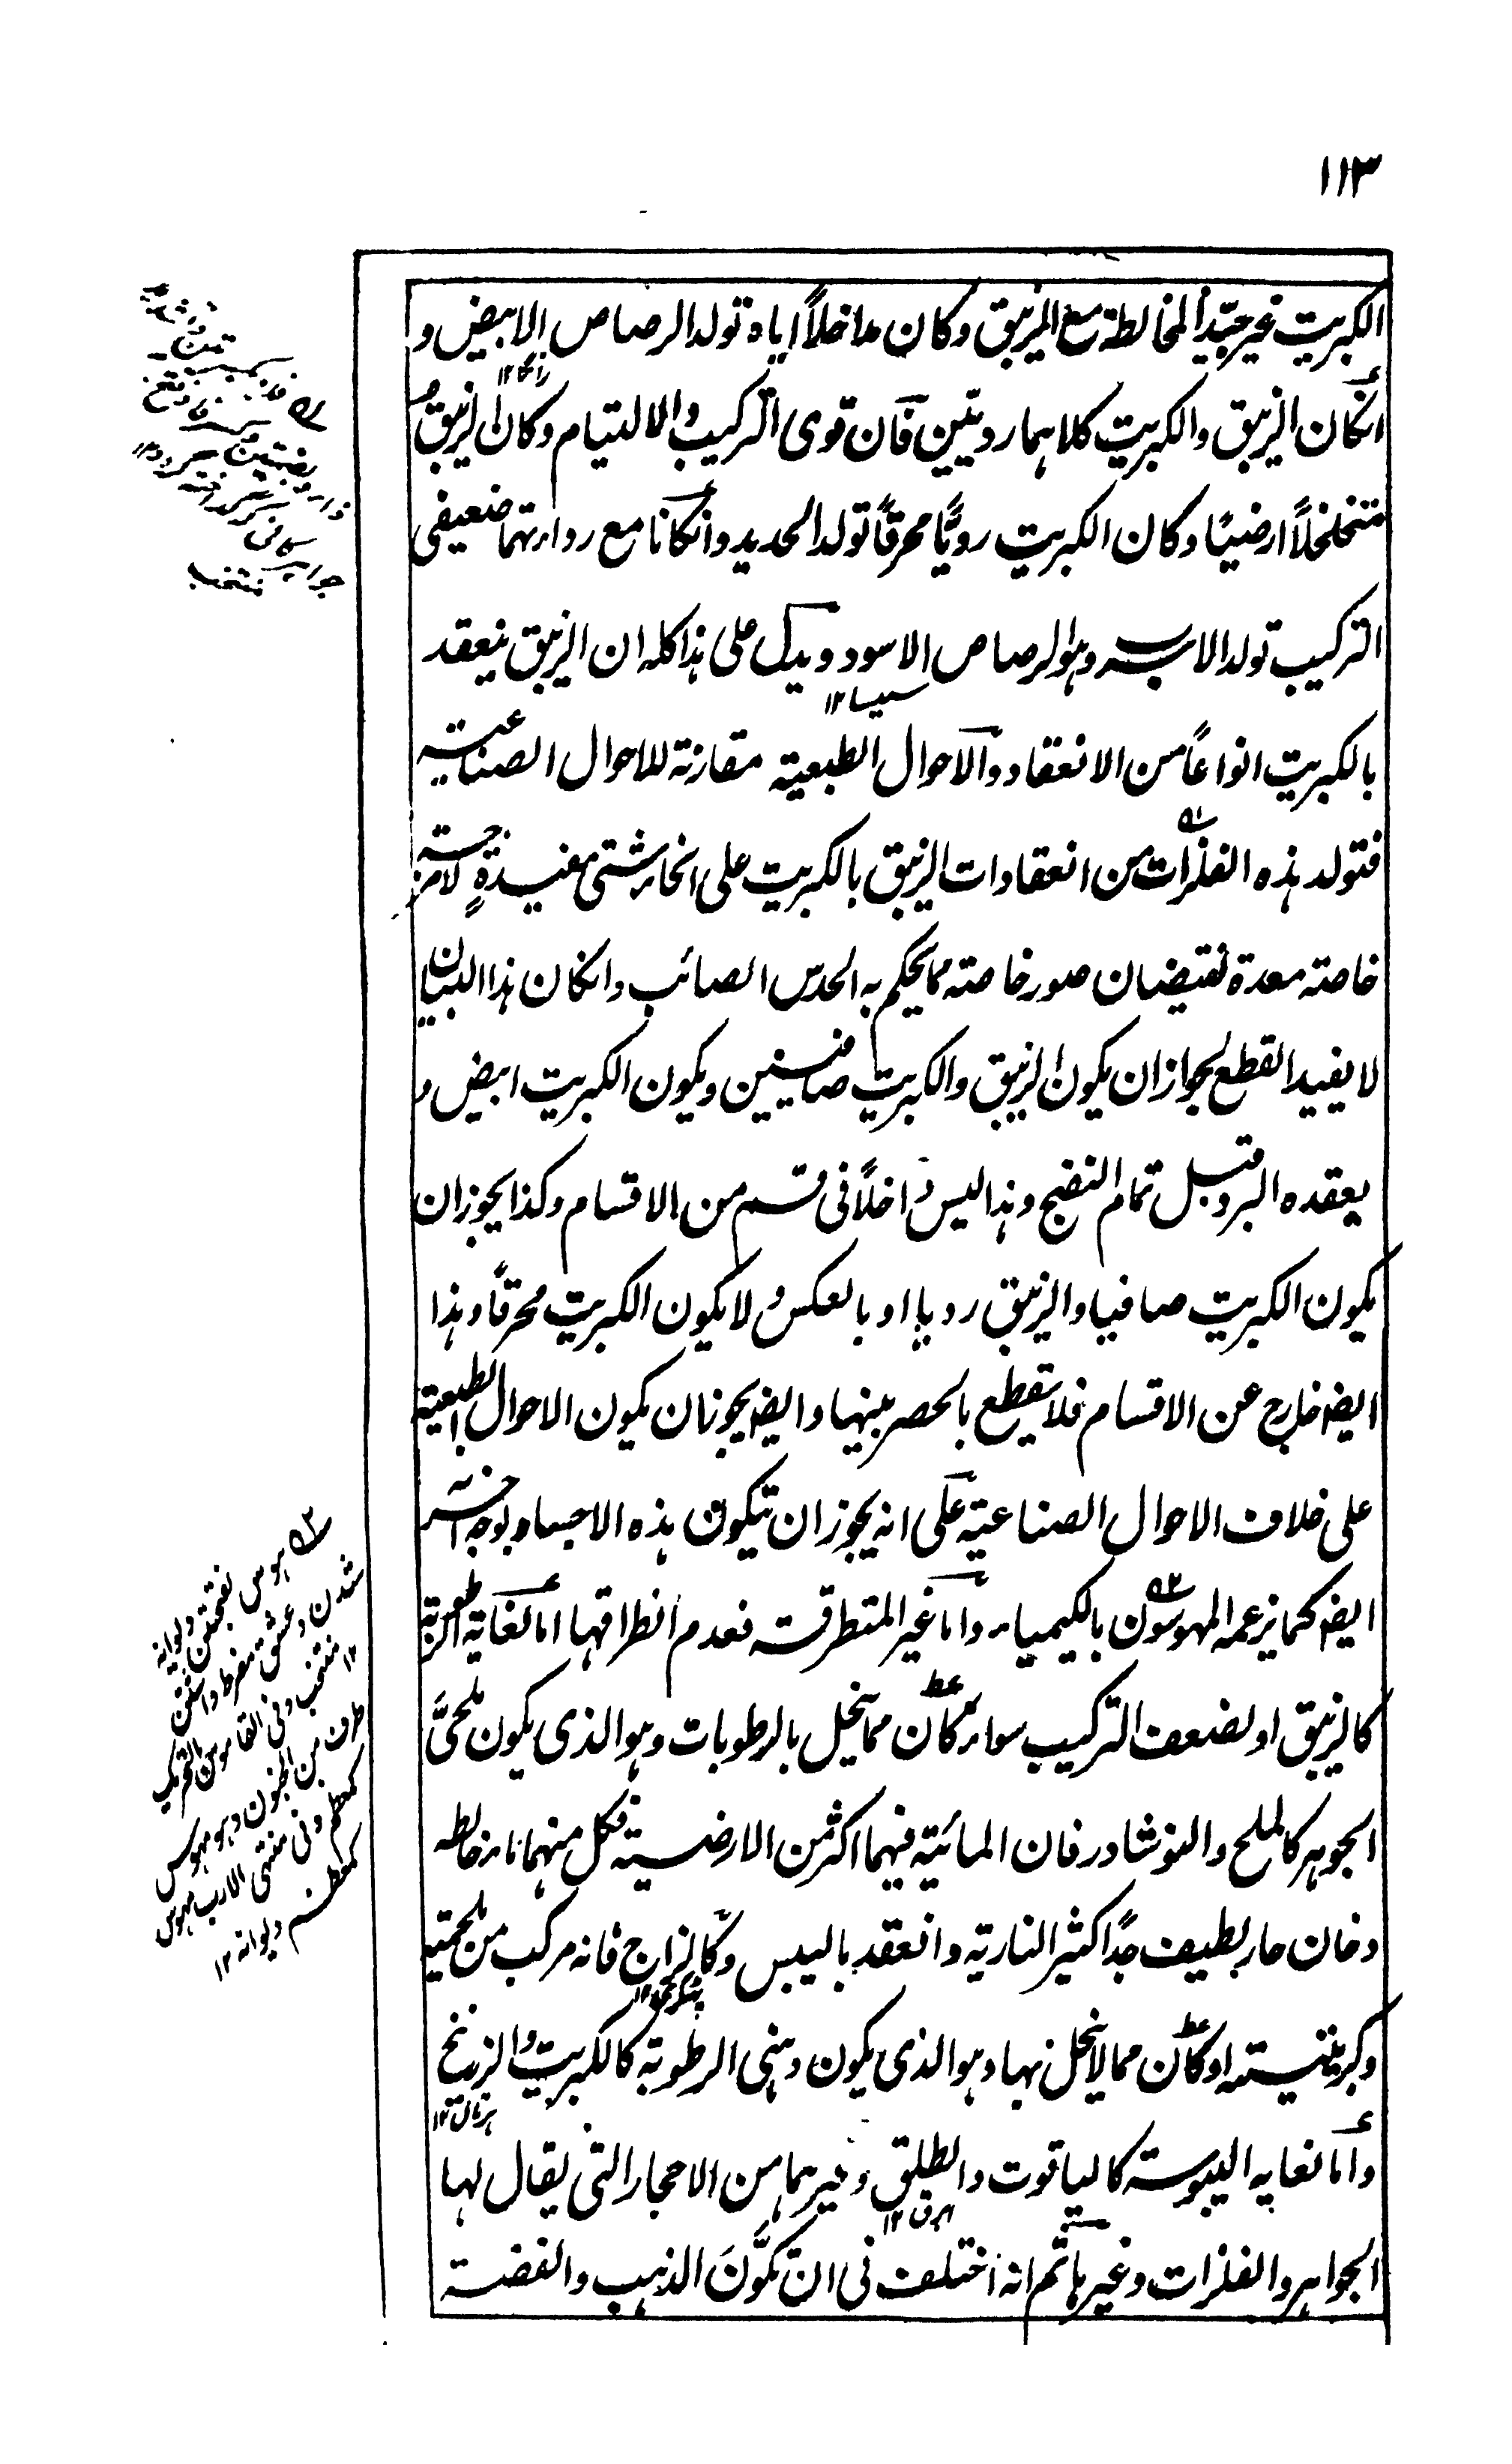 ١١٣
الكبريت غير جيّد المخالطة مع الزيبق وكان مداخلاً اياه تولد الرصاص الابيض و
رانگا ١٢
انكان الزيبق والكبريت كلاهما رديّين فان قوى التركيب والالتيام وكان الزيبق
متخلخلاً ارضيًا وكان الكبريت رديًّا محرقاً تولد الحديد وانكانا مع رداءتهما ضعيفى
التركيب تولد الاسرب وهو الرصاص الاسود ويدل على هذا كله ان الزيبق ينعقد
سيسا ١٢
بالكبريت انواعاً من الانعقاد والاحوال الطبعية مقارنة للاحوال الصناعية
فتولد هذه الفلزات من انعقادات الزيبق بالكبريت على انحاء شتى مفيدةٍ لامزجة
خاصة معدة لفيضان صور خاصة مما يحكم به الحدس الصائب وانكان هذا البيان
لا يفيد القطع لجواز ان يكون الزيبق والكبريت صافيين ويكون الكبريت ابيض و
يعقده البرد قبل تمام النضج وهذا ليس داخلاً فى قسم من الاقسام وكذا يجوز ان
يكون الكبريت صافيا والزيبق رديا او بالعكس ولا يكون الكبريت محرقاً وهذا
ايضا خارج عن الاقسام فلا يقطع بالحصر بينها وايضا يجوز ان يكون الاحوال الطبعية
على خلاف الاحوال الصناعية على انه يجوز ان تتكون هذه الاجساد بوجه آخر
ايضا كما يزعمه المهوسون بالكيمياء واما غير المتطرقة فعدم انطراقها اما لغاية الرطوبة
كالزيبق او لضعف التركيب سواء كان مما ينحل بالرطوبات وهو الذى يكون ملحىَّ
الجوهر كالملح والنوشادر فان المائية فيهما اكثر من الارضية فكل منهما ماء خالطه
دخان حار لطيف جدًا كثير النارية وانعقد باليبس وكالزاج فانه مركب من ملحية
وكبريتية او كان مما لا ينحل بها وهو الذى يكون دهنى الرطوبة كالكبريت والزرنيخ
هرتال ١٢
واما لغاية اليبوسة كالياقوت والطلق وغيرهما من الاحجار التى يقال لها
ابرق ١٢
الجواهر والفلزات وغيرها ثم انه اختلف فى ان تكوّنَ الذهب والفضة
هوس بفتحتين ديوانه
شدن وعشق مفرط داشتن
١٢ منتخب وفى القاموس بالتحريك
طرف من الجنون وهو مهوس
كمعظم وفى منتهى الارب مهوس
كمعظم ديوانه ١٢